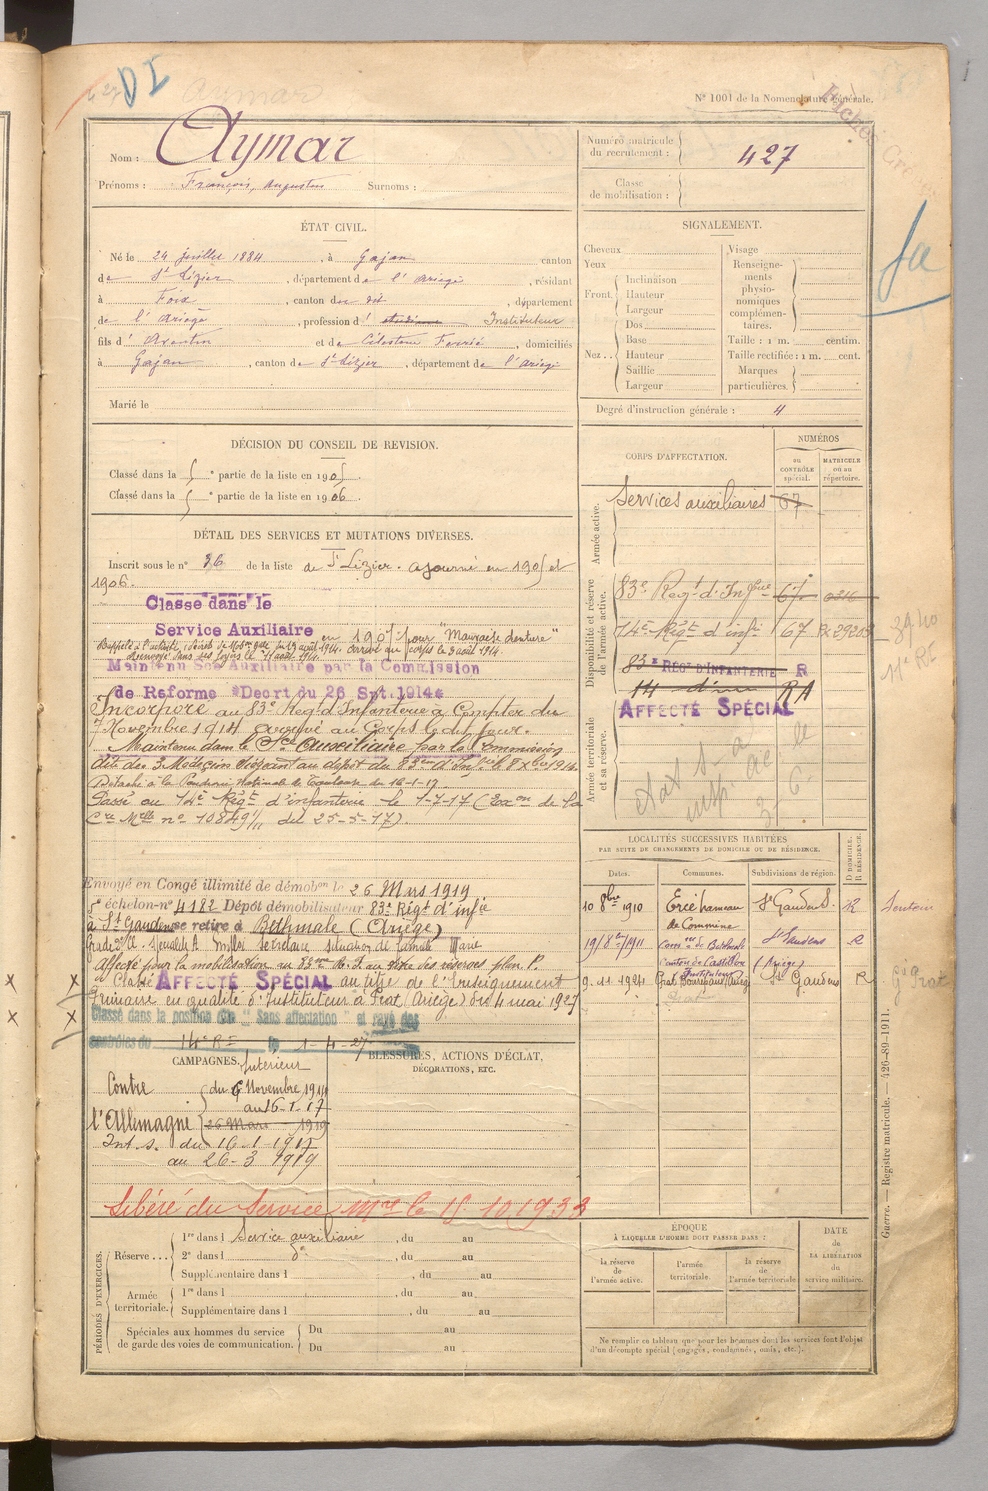 DI
Aymar
N° 1001 de la Nomenclature générale.
Nom : Aymar
Prénoms : François, Augustin Surnoms :
Numéro matricule du recrutement : 427
Classe de mobilisation :
ÉTAT CIVIL.
Né le 24 juillet 1884, à Gajan canton
de St Lizier, département de l'Ariège, résidant
à Foix, canton du dit, département
de l'Ariège, profession d' étudiant Instituteur
fils d' Arontin et de Célestine Ferrié, domiciliés
à Gajan, canton de St Lizier, département de l'Ariège
Marié le
SIGNALEMENT.
Cheveux
Yeux
Front. Inclinaison
Hauteur
Largeur
Nez.. Dos
Base
Hauteur
Saillie
Largeur
Visage
Renseignements physionomiques complémentaires.
Taille : 1 m. centim.
Taille rectifiée : 1 m. cent.
Marques particulières.
Degré d'instruction générale : 4
fa
DÉCISION DU CONSEIL DE REVISION.
Classé dans la e partie de la liste en 1905
Classé dans la e partie de la liste en 1906
DÉTAIL DES SERVICES ET MUTATIONS DIVERSES.
Inscrit sous le n° 36 de la liste de St Lizier. ajourné en 1905 et
1906.
Classé dans le
Service Auxiliaire en 1907 pour "Mauvaise denture"
Maintenu Sce Auxiliaire par la Commission
de Reforme Decrt du 26 Spt. 1914
Incorporé au 83e Régt d'Infanterie à Compter du
7 Novembre 1914 arrivé au Corps le dit jour.
Maintenu dans le Sce Auxiliaire par la Commission
dite des 3 Médecins siégeant au dépôt du 83e
Détaché à la Poudrerie Nationale de Toulouse du 16-1-17
Passé au 14e Régt d'infanterie le 1-7-17 (Exon de la
Cre Mlle n° 10849 1/11 du 25-5-17).
Envoyé en Congé illimité de démobon le 26 Mars 1919
5e échelon-n° 4182 Dépôt démobilisateur 83e Régt d'infie
à St Gaudens se retire à Bethmale (Ariège)
Affecté pour la mobilisation au 83ème R.I. au titre des réserves plan P.
Classé AFFECTÉ SPÉCIAL au titre de l'Enseignement
Primaire en qualité d'Instituteur à Prat (Ariège) dès 4 mai 1927
Classé dans la position dite "Sans affectation" et rayé des
contrôles du 14e RI le 1-4-27
CORPS D'AFFECTATION.
NUMÉROS
au CONTRÔLE spécial.
MATRICULE ou au répertoire.
Armée active.
Services auxiliaires 67
Disponibilité et réserve de l'armée active.
83e Régt d'Infrie 67 0316
14e Régt d'infie 67
83e RÉGt D'INFANTERIE R
14 d'inf RA
AFFECTÉ SPÉCIAL
Armée territoriale et sa réserve.
LOCALITÉS SUCCESSIVES HABITÉES
PAR SUITE DE CHANGEMENTS DE DOMICILE OU DE RÉSIDENCE.
Dates. Communes. Subdivisions de région. D DOMICILE. R RÉSIDENCE.
10 8bre 1910 Ercé hameau de Cominine St Gaudens. R
19/8bre/1911 de Bethmale canton de Castillon (Ariège) St Gaudens R
9.11.1921 Prat Bonrepaux (Ariège) Instituteur St Gaudens R
Sentein
CAMPAGNES.
Intérieur
Contre l'Allemagne
du 6 Novembre 1914
au 16-1-17
26 Mars 1919
Int. s. du 16-1-1917
au 26-3 1919
BLESSURES, ACTIONS D'ÉCLAT,
DÉCORATIONS, ETC.
Libéré du Service Mre le 15.10.1933
PÉRIODES D'EXERCICES.
Réserve... 1re dans l Service auxiliaire, du au
2e dans l do, du au
Supplémentaire dans l, du au
Armée territoriale. 1re dans l, du au
Supplémentaire dans l, du au
Spéciales aux hommes du service de garde des voies de communication. Du au
Du au
ÉPOQUE
À LAQUELLE L'HOMME DOIT PASSER DANS :
la réserve de l'armée active.
l'armée territoriale.
la réserve de l'armée territoriale
DATE de LA LIBÉRATION du service militaire.
Ne remplir ce tableau que pour les hommes dont les services font l'objet
d'un décompte spécial (engagés, condamnés, omis, etc.).
Guerre. — Registre matricule. — 426-89-1911.